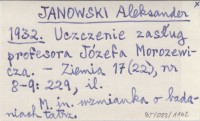 JANOWSKI Aleksander
1932. Uczczenie zasług
profesora Józefa Morozewi-
cza. – Ziemia 17(22), nr
8-9: 229, il.
M. in. wzmianka o bada-
niach Tatr.